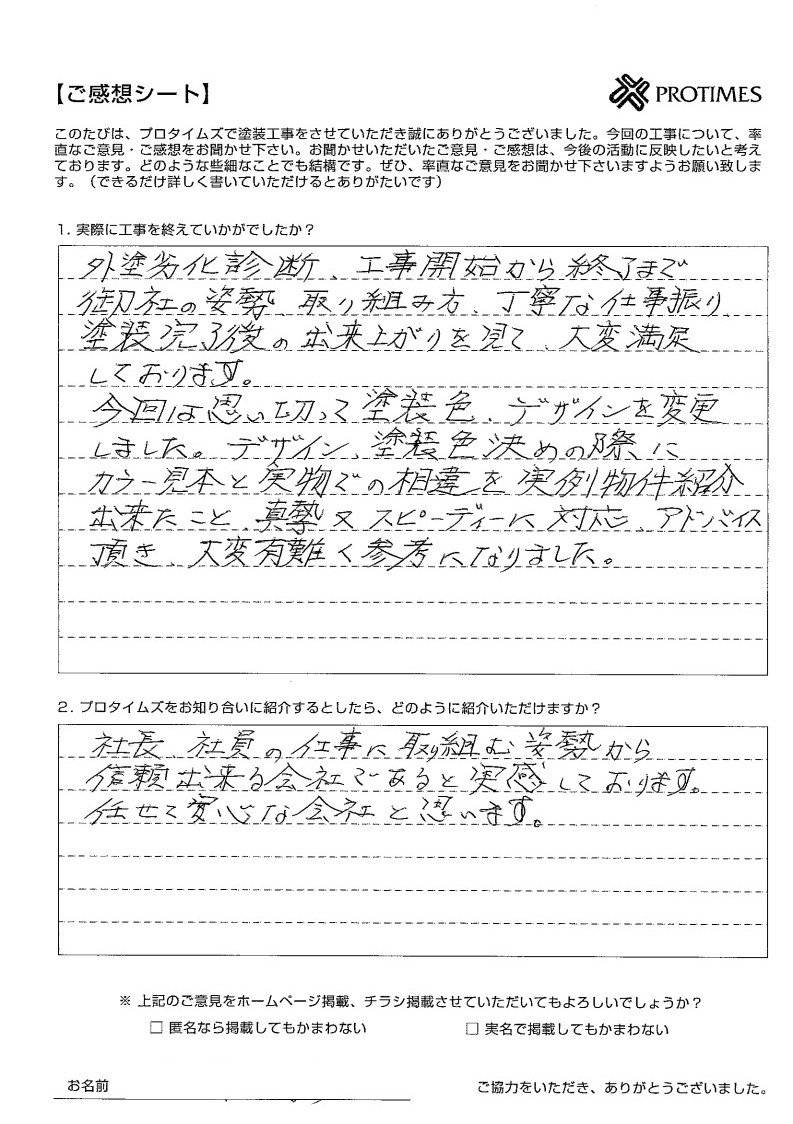 【ご感想シート】
PROTIMES
このたびは、プロタイムズで塗装工事をさせていただき誠にありがとうございました。今回の工事について、率
直なご意見・ご感想をお聞かせ下さい。お聞かせいただいたご意見・ご感想は、今後の活動に反映したいと考え
ております。どのような些細なことでも結構です。ぜひ、率直なご意見をお聞かせ下さいますようお願い致しま
す。（できるだけ詳しく書いていただけるとありがたいです）
1. 実際に工事を終えていかがでしたか？
外塗劣化診断、工事開始から終了まで
御社の姿勢、取り組み方、丁寧な仕事振り
塗装完了後の出来上がりを見て、大変満足
しております。
今回は思い切って塗装色、デザインを変更
しました。デザイン、塗装色決めの際に
カラー見本と実物での相違を実例物件紹介
出来たこと、真摯又スピーディーに対応、アドバイス
頂き、大変有難く参考になりました。
2. プロタイムズをお知り合いに紹介するとしたら、どのように紹介いただけますか？
社長、社員の仕事に取り組む姿勢から
信頼出来る会社であると実感しております。
任せて安心な会社と思います。
※ 上記のご意見をホームページ掲載、チラシ掲載させていただいてもよろしいでしょうか？
□ 匿名なら掲載してもかまわない
□ 実名で掲載してもかまわない
お名前
ご協力をいただき、ありがとうございました。